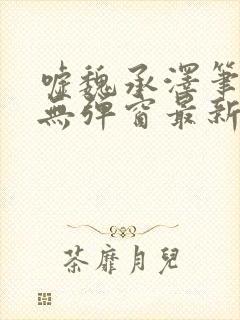 嘘魏承澤筆
無彈窗最新
荼靡月兒